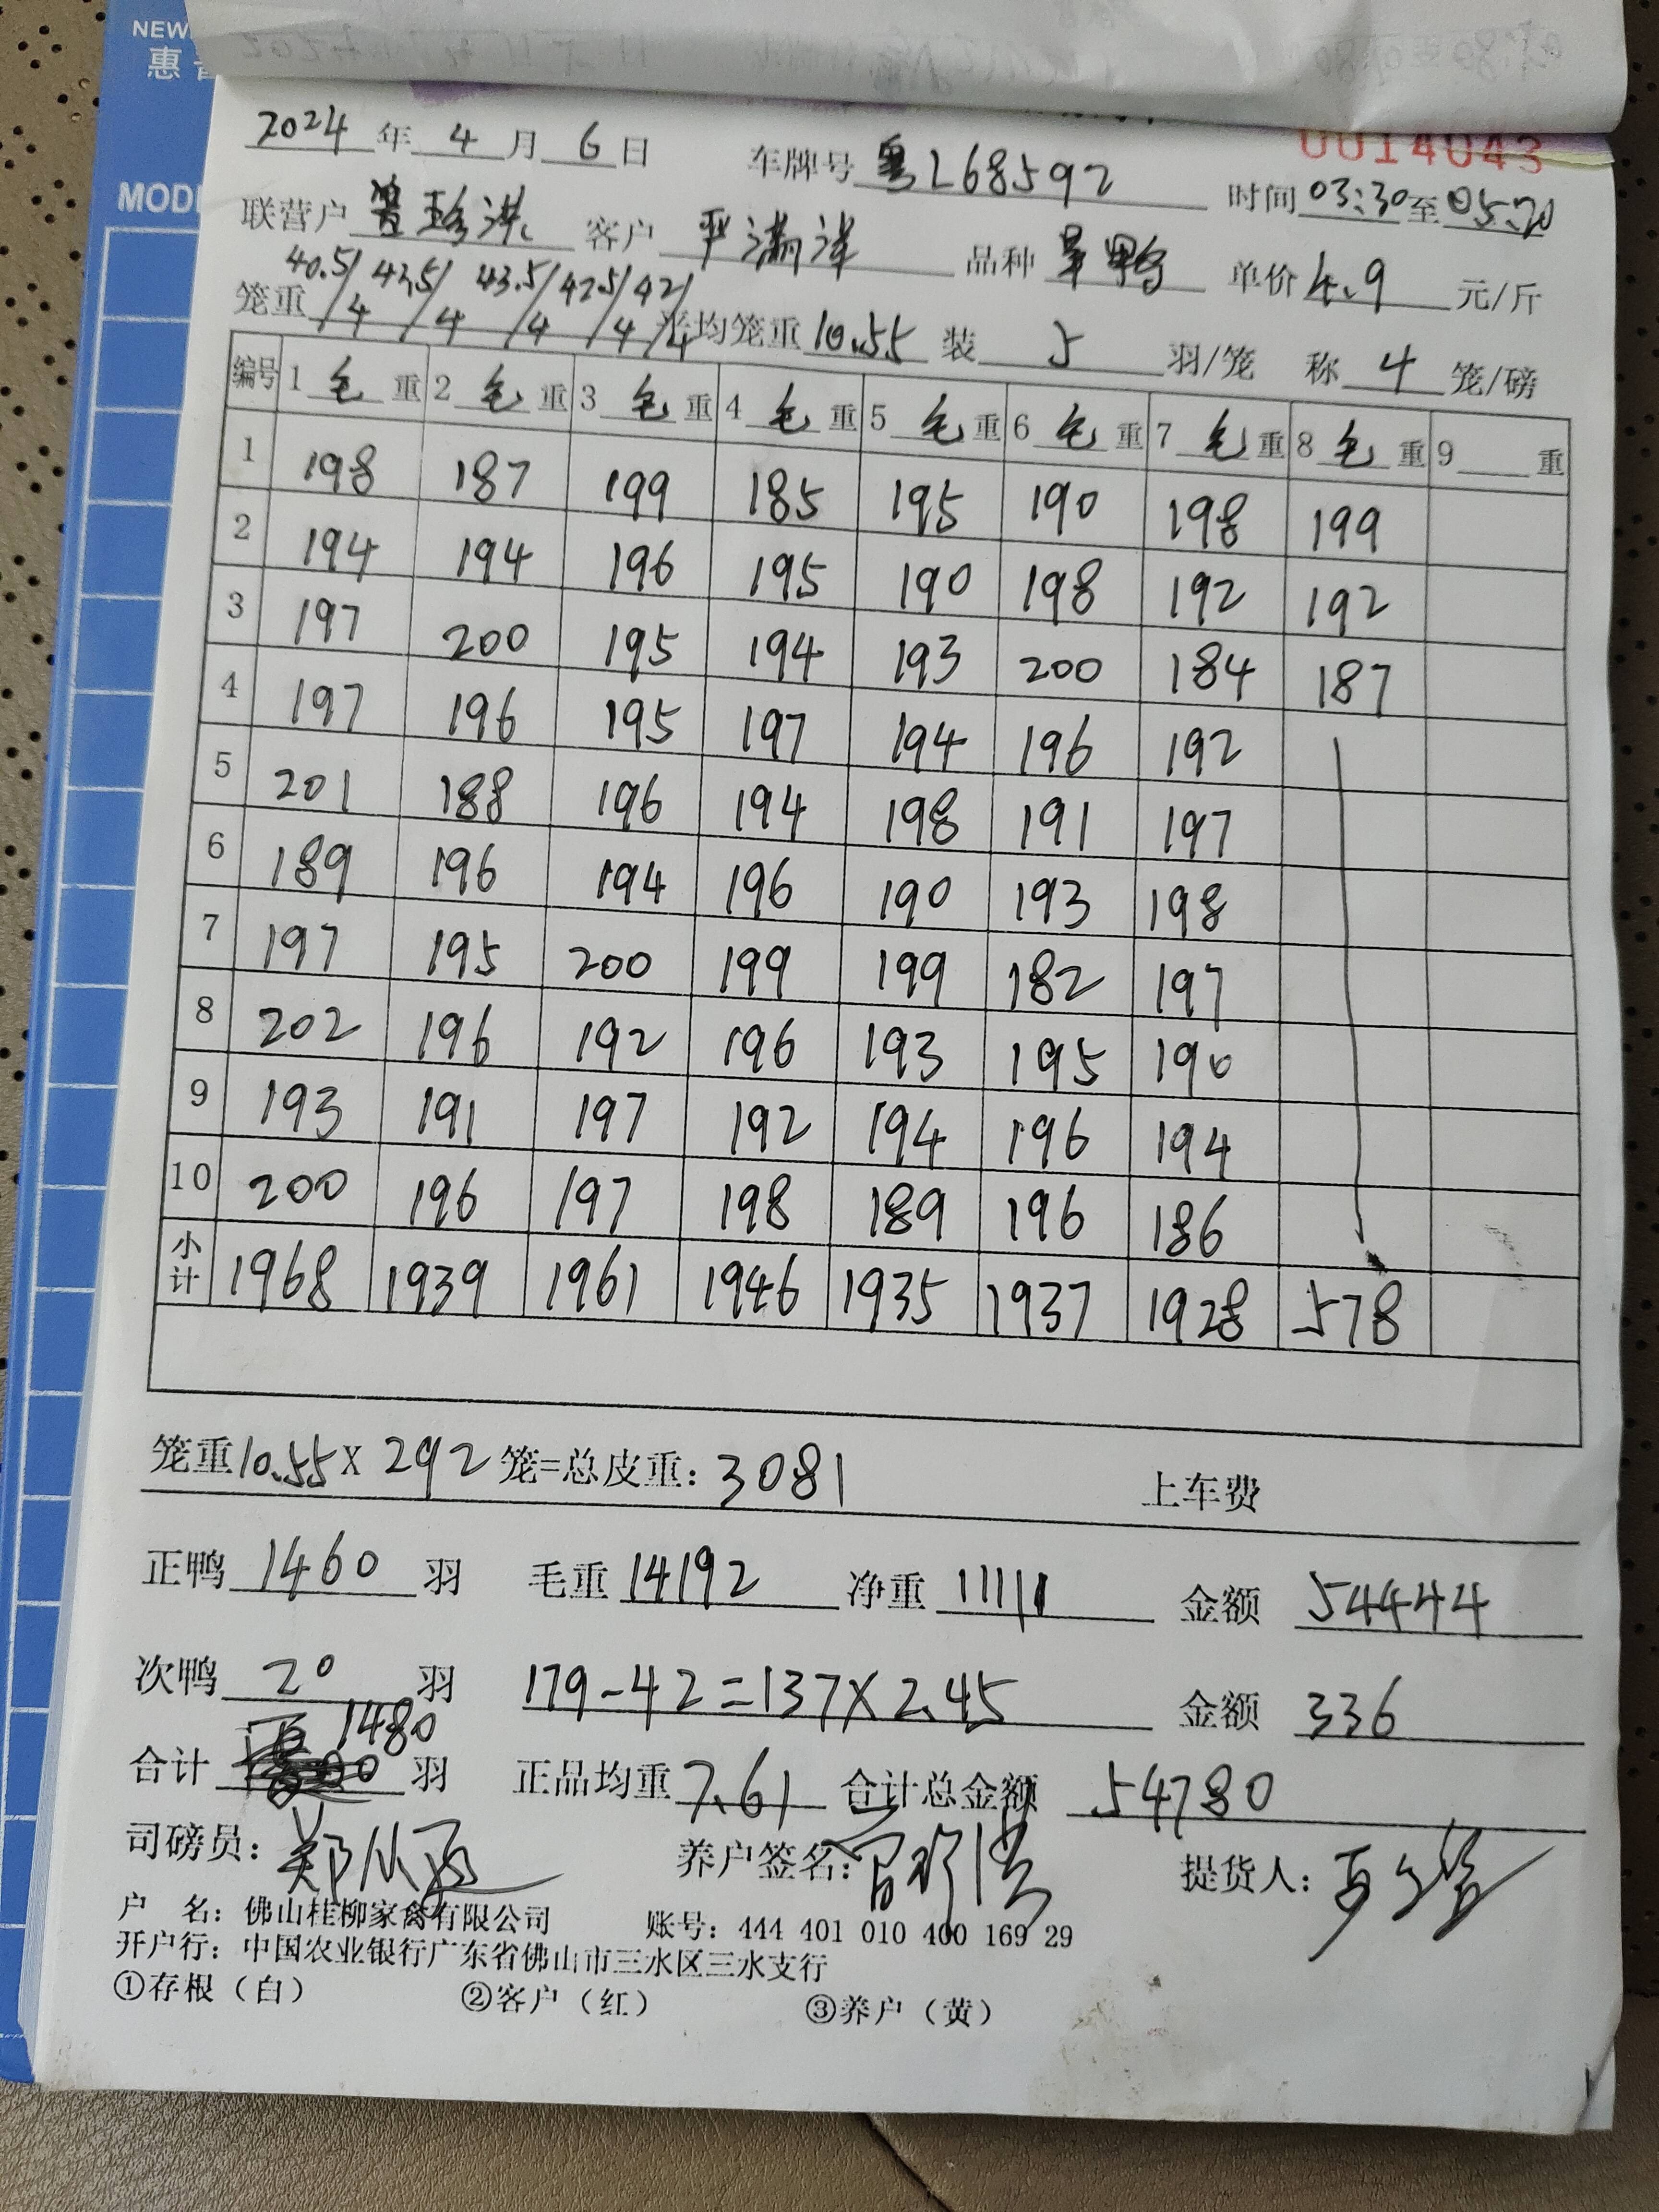 NEW
惠
MODE
0014043
2024 年 4 月 6 日 车牌号 粤L68592 时间 03:30 至 05:20
联营户 曾珍洪 客户 严满洋 品种 单价 4.9 元/斤
笼重 40.5/4 42.5/4 43.5/4 42.5/4 42/4 平均笼重 10.55 装 5 羽/笼 称 4 笼/磅
编号 1 毛 重 2 毛 重 3 毛 重 4 毛 重 5 毛 重 6 毛 重 7 毛 重 8 毛 重 9 重
1 198 187 199 185 195 190 198 199
2 194 194 196 195 190 198 192 192
3 197 200 195 194 193 200 184 187
4 197 196 195 197 194 196 192
5 201 188 196 194 198 191 197
6 189 196 194 196 190 193 198
7 197 195 200 199 199 182 197
8 202 196 192 196 193 195 190
9 193 191 197 192 194 196 194
10 200 196 197 198 189 196 186
小计 1968 1939 1961 1946 1935 1937 1928 578
笼重 10.55 X 292 笼=总皮重: 3081 上车费
正鸭 1460 羽 毛重 14192 净重 11111 金额 54444
次鸭 20 羽 179-42=137X2.45 金额 336
合计 1480 羽 正品均重 7.61 合计总金额 54780
司磅员: 养户签名: 提货人:
户 名: 佛山桂柳家禽有限公司 账号: 444 401 010 400 169 29
开户行: 中国农业银行广东省佛山市三水区三水支行
①存根（白） ②客户（红） ③养户（黄）